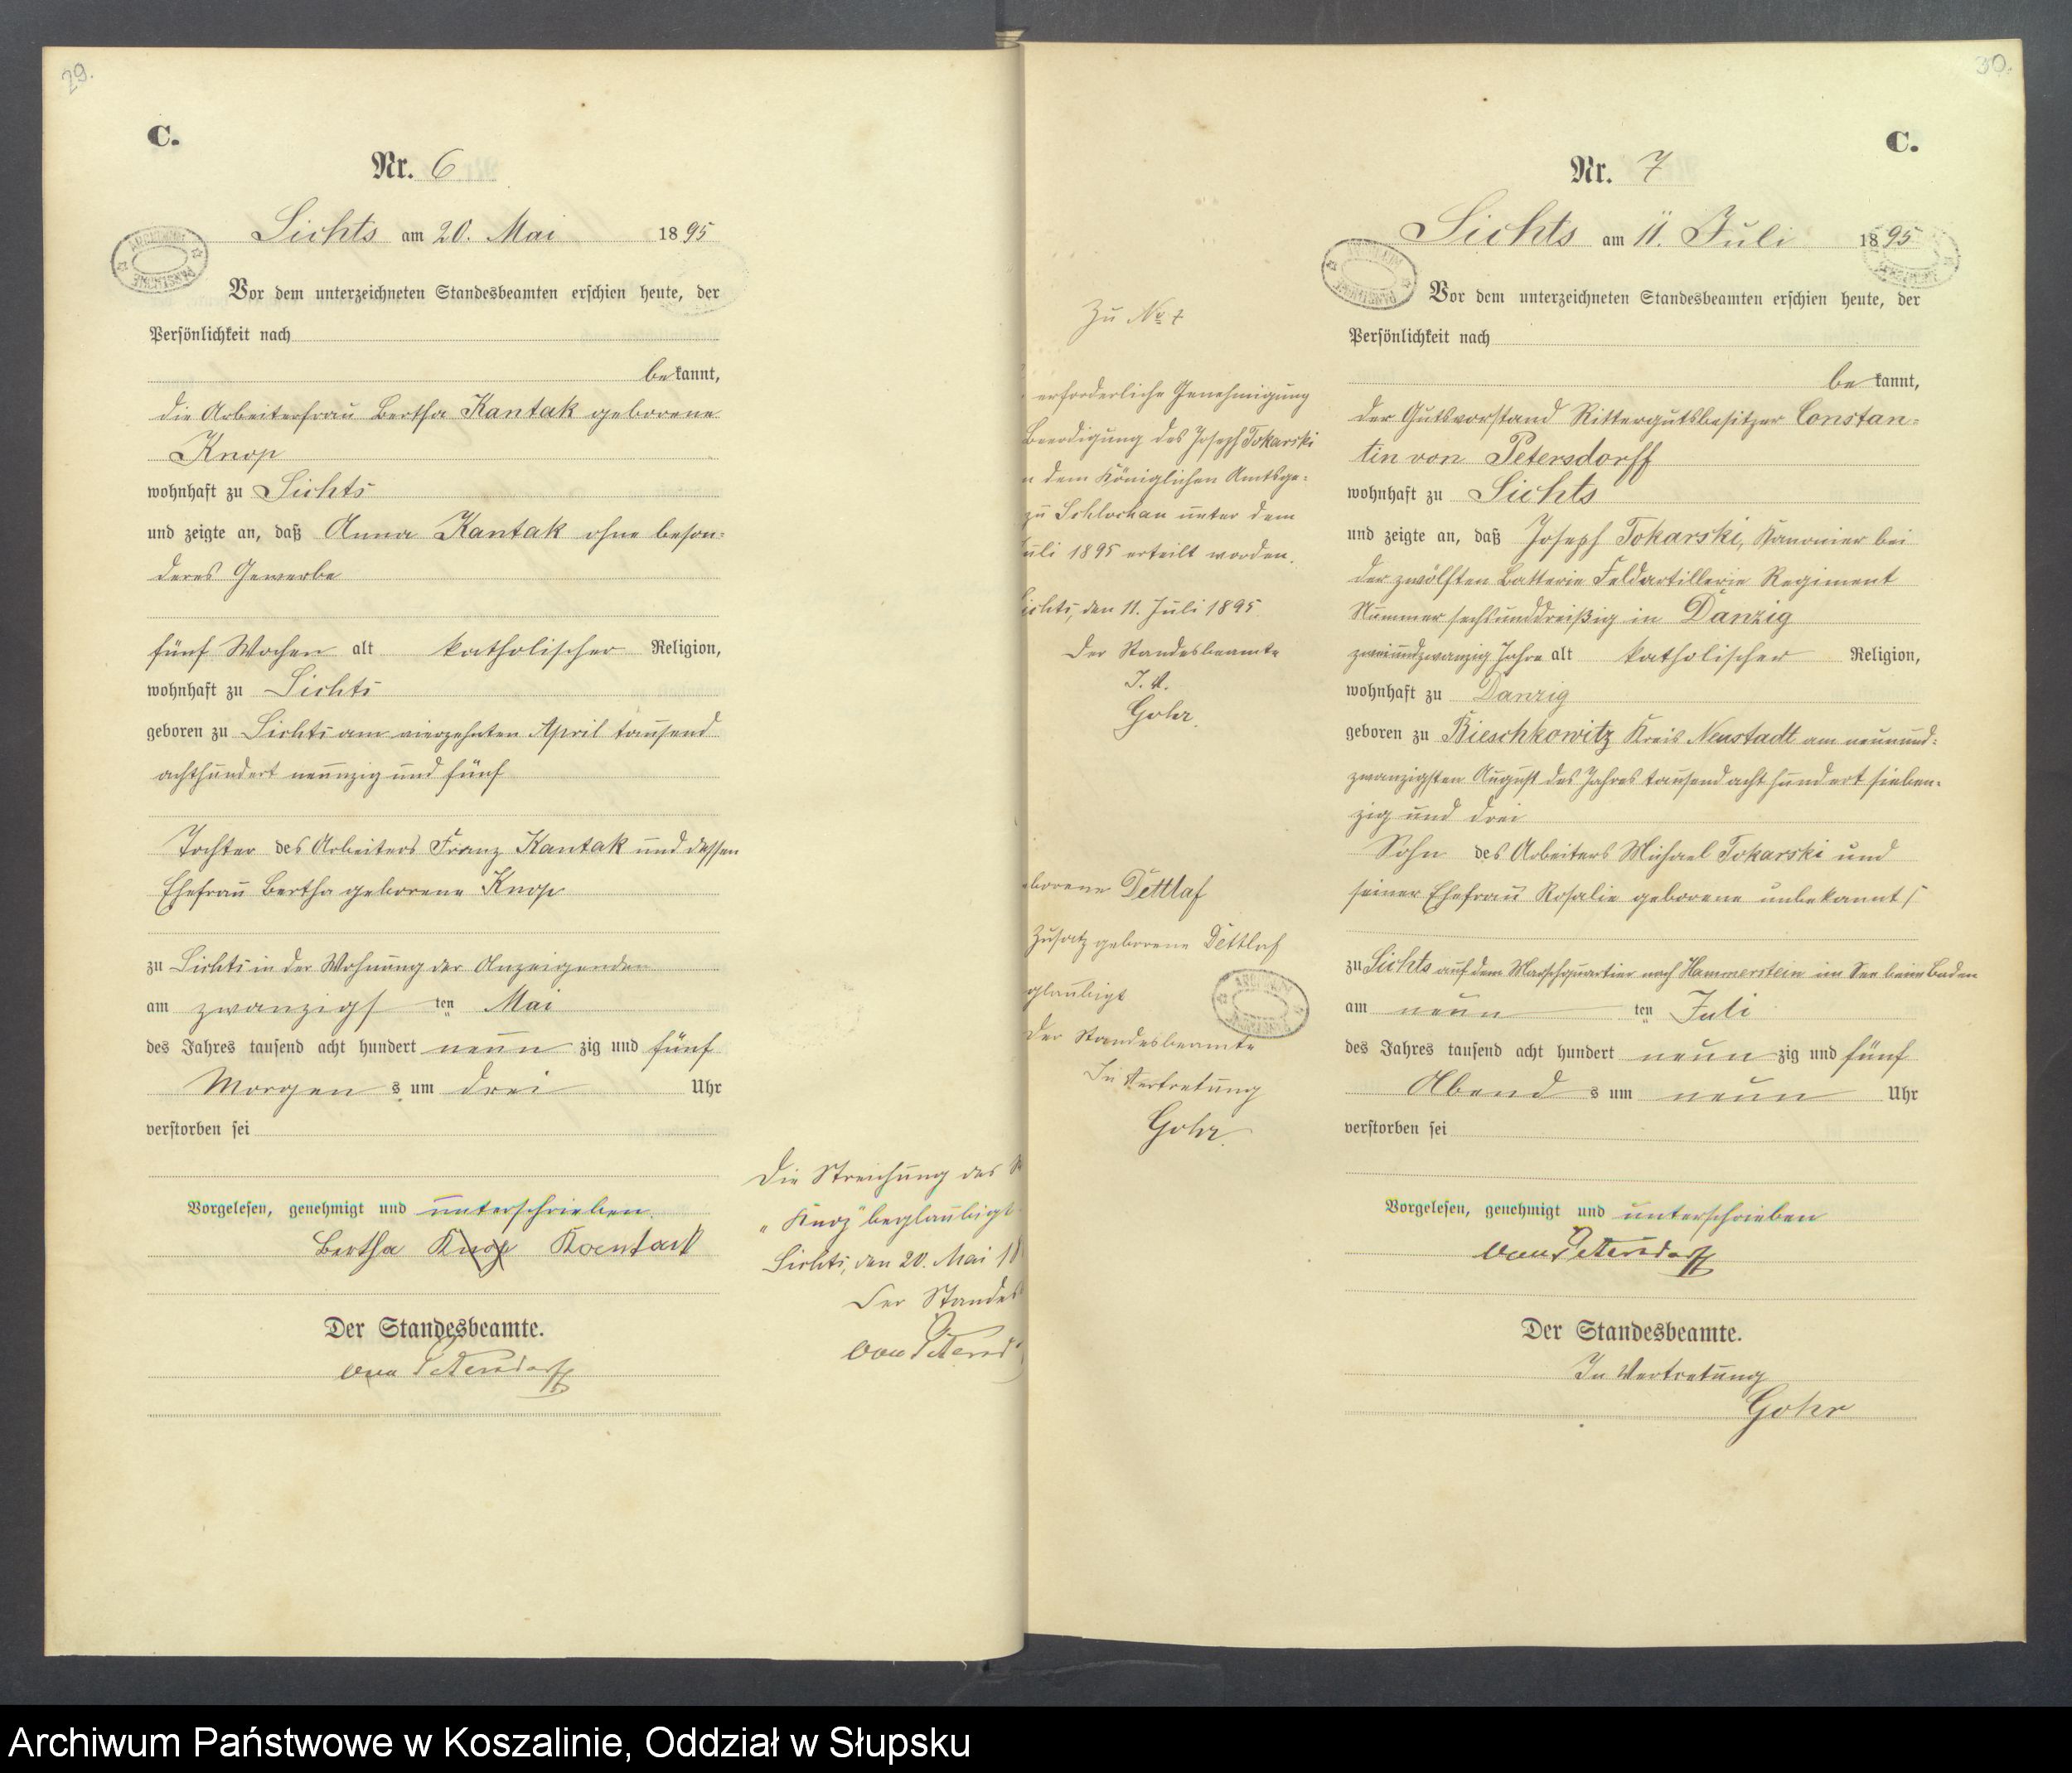 29.
C.
Nr. 6
Sichts am 20. Mai 1895
Vor dem unterzeichneten Standesbeamten erschien heute, der
Persönlichkeit nach
bekannt,
die Arbeiterfrau Bertha Kantak geborene
Knop
wohnhaft zu Sichts
und zeigte an, daß Anna Kantak ohne beson-
deres Gewerbe
fünf Wochen alt katholischer Religion,
wohnhaft zu Sichts
geboren zu Sichts am vierzehnten April tausend
achthundert neunzig und fünf
Tochter des Arbeiters Franz Kantak und dessen
Ehefrau Bertha geborene Knop
zu Sichts in der Wohnung der Anzeigenden
am zwanzigsten Mai
des Jahres tausend acht hundert neunzig und fünf
Morgens um drei Uhr
verstorben sei
Vorgelesen, genehmigt und unterschrieben.
Bertha Knop Kantak
Der Standesbeamte.
von Petersdorff
Die Streichung des
"Knop" beglaubigt
Sichts, den 20. Mai 18
Der Standes
von Petersd
30.
C.
Nr. 7
Sichts am 11. Juli 1895
Vor dem unterzeichneten Standesbeamten erschien heute, der
Persönlichkeit nach
bekannt,
der Gutsvorstand Rittergutsbesitzer Constan-
tin von Petersdorff
wohnhaft zu Sichts
und zeigte an, daß Joseph Tokarski, Kanonier bei
der zwölften Batterie Feldartillerie Regiment
Nummer sechsunddreißig in Danzig
zweiundzwanzig Jahre alt katholischer Religion,
wohnhaft zu Danzig
geboren zu Bieschkowitz Kreis Neustadt am neunund-
zwanzigsten August des Jahres tausend acht hundert sieben-
zig und drei
Sohn des Arbeiters Michael Tokarski und
seiner Ehefrau Rosalie geborene unbekannt
zu Sichts auf dem Marschquartier nach Hammerstein im See beim Baden
am neunten Juli
des Jahres tausend acht hundert neunzig und fünf
Abends um neun Uhr
verstorben sei
Vorgelesen, genehmigt und unterschrieben
von Petersdorff
Der Standesbeamte.
In Vertretung
Gohr
Zu No 7
erforderliche Genehmigung
Beerdigung des Joseph Tokarski
n dem Königlichen Amtsge-
zu Schlochau unter dem
uli 1895 erteilt worden.
Sichts, den 11. Juli 1895
Der Standesbeamte
I. V.
Gohr.
eborene Dettlaf
Zusatz geborene Dettlaf
glaubigt
Der Standesbeamte
In Vertretung
Gohr.
Archiwum Państwowe w Koszalinie, Oddział w Słupsku